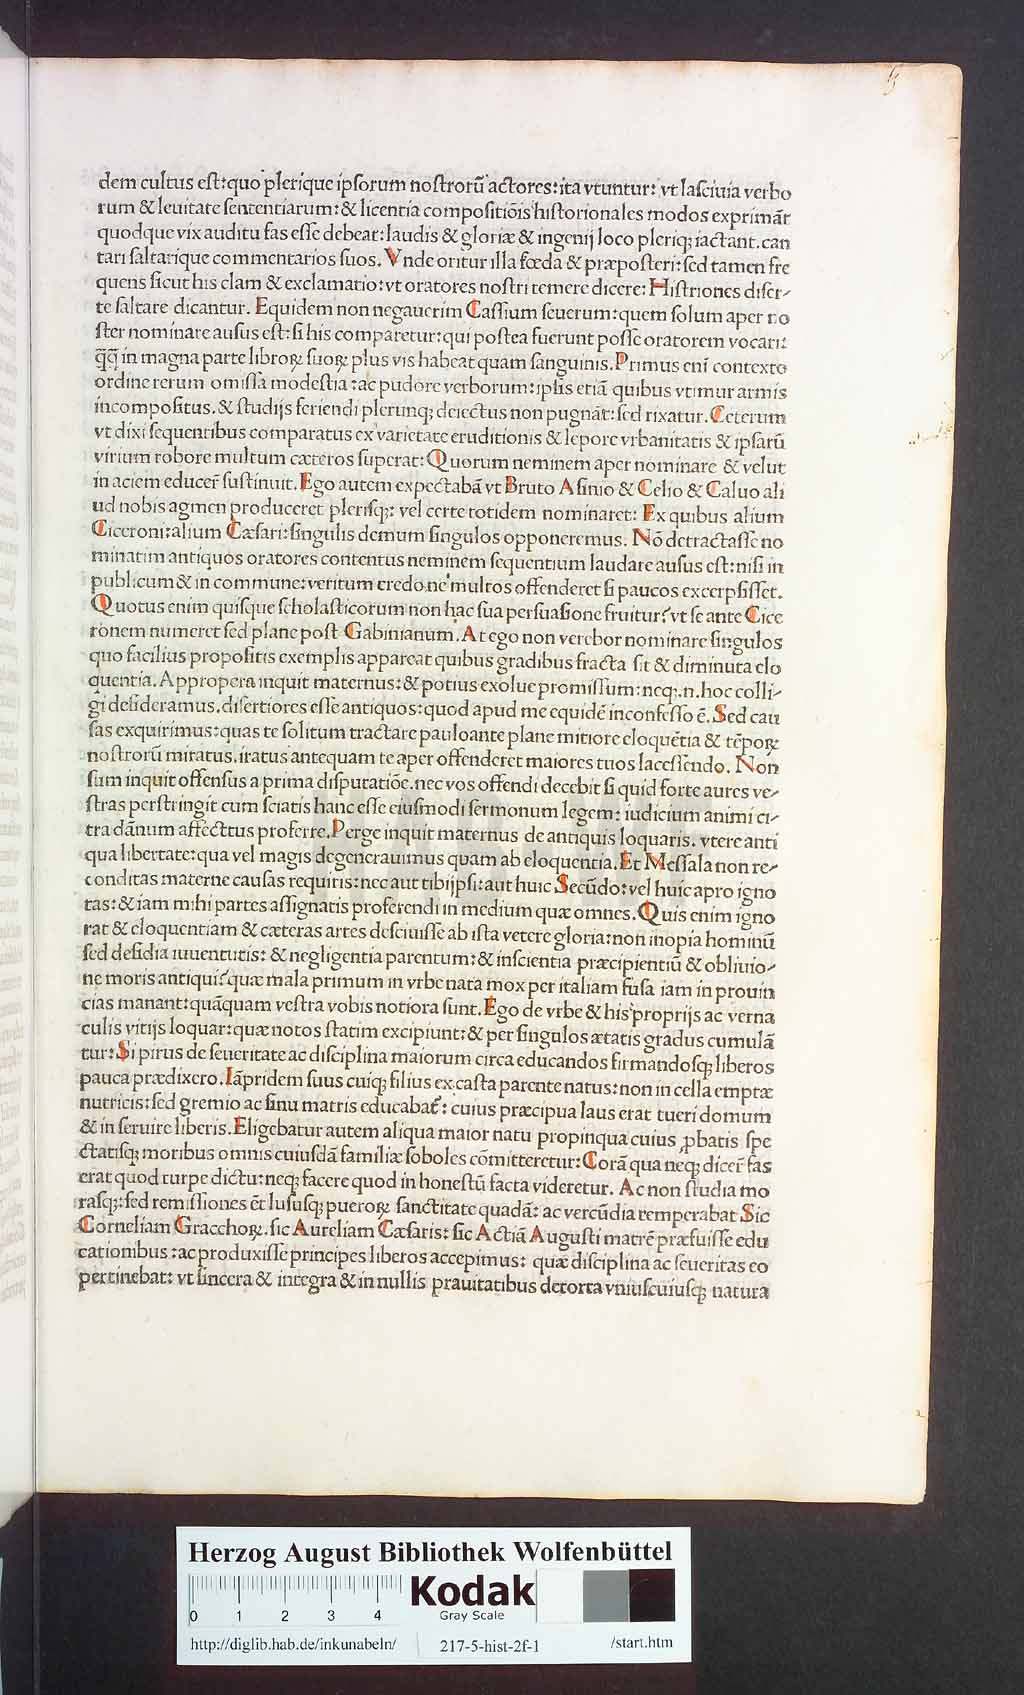 dem cultus eſt:quo pleriʠue ipſorum noſtrorū actores:ita vtuntur: vt laſciuia verbo
rum & leuitate ſententiarum:& licentia compoſitiōis hiſtorionales modos exprimāt
quodque vix auditu fas eſſe debeat:laudis & gloriæ & ingenij loco pleriqꝫ iactant.can
tari ſaltarique commentarios ſuos. Vnde oritur illa fœda & præpoſteri:ſed tamen fre
quens ſicut his clam & exclamatio:vt oratores noſtri temere dicere: Hiſtriones diſer-
te ſaltare dicantur. Equidem non negauerim Caſſium ſeuerum:quem ſolum aper no
ſter nominare auſus eſt:ſi his comparetur:qui poſtea fuerunt poſſe oratorem vocari:
q̄q̄ in magna parte libroꝝ ſuoꝝ plus vis habeat quam ſanguinis.Primus eni contexto
ordine rerum omiſſa modeſtia:ac pudore verborum:ipſis etiā quibus vtimur armis
incompoſitus.& ſtudijs feriendi plerunqꝫ deiectus non pugnāt:ſed rixatur.Ceterum
vt dixi ſequentibus comparatus ex varietate eruditionis & lepore vrbanitatis & ipſarū
virium robore multum cæteros ſuperat:Quorum neminem aper nominare & velut
in aciem educer̄ ſuſtinuit.Ego autem expectabā vt Bruto Aſinio & Celio & Caluo ali
ud nobis agmen produceret pleriſqꝫ: vel certe totidem nominaret: Ex quibus alium
Ciceroni:alium Cæſari:ſingulis demum ſingulos opponeremus. Nō detractaſſe no
minatim antiquos oratores contentus neminem ſequentium laudare auſus eſt:niſi in
publicum & in commune:veritum credo ne multos offenderet ſi paucos excerpſiſſet.
Quotus enim quiſque ſcholaſticorum non hac ſua perſuaſione fruitur?vt ſe ante Cice
ronem numeret ſed plane poſt Gabinianum.At ego non verebor nominare ſingulos
quo facilius propoſitis exemplis appareat quibus gradibus fracta ſit & diminuta elo
quentia.Appropera inquit maternus:& potius exolue promiſſum:neqꝫ.n.hoc colli-
gi deſideramus.diſertiores eſſe antiquos:quod apud me equidē in confeſſo ē.Sed cau
ſas exquirimus:quas te ſolitum tractare pauloante plane mitiore eloquētia & tēpoꝝ
noſtrorū miratus.iratus antequam te aper offenderet maiores tuos laceſſendo. Non
ſum inquit offenſus a prima diſputatiōe.nec vos offendi decebit ſi quid forte aures ve-
ſtras perſtringit cum ſciatis hanc eſſe eiuſmodi ſermonum legem: iudicium animi ci-
tra dānum affecttus proferre.Perge inquit maternus de antiquis loquaris.vtere anti
qua libertate:qua vel magis degenerauimus quam ab eloquentia.Et Meſſala non re-
conditas materne cauſas requiris:nec aut tibijpſi:aut huic Secūdo:vel huic apro igno
tas:& iam mihi partes aſſignatis proferendi in medium quæ omnes.Quis enim igno
rat & eloquentiam & cæteras artes deſciuiſſe ab iſta vetere gloria:non inopia hominū
ſed deſidia iuuentutis: & negligentia parentum:& inſcientia præcipientiū & obliuio-
ne moris antiqui?quæ mala primum in vrbe nata mox per italiam fuſa iam in prouin
cias manant:quāquam veſtra vobis notiora ſunt.Ego de vrbe & his proprijs ac verna
culis vitijs loquar:quæ notos ſtatim excipiunt:& per ſingulos ætatis gradus cumulā
tur:Si pirus de ſeueritate ac diſciplina maiorum circa educandos firmandoſqꝫ liberos
pauca prædixero.Iāpridem ſuus cuiqꝫ filius ex caſta parente natus:non in cella emptæ
nutricis:ſed gremio ac ſinu matris educabat̄: cuius præcipua laus erat tueri domum
& in ſeruire liberis.Eligebatur autem aliqua maior natu propinqua cuius ꝓbatis ſpe
ctatiſqꝫ moribus omnis cuiuſdā familiæ ſoboles cōmitteretur:Corā qua neqꝫ dicer̄ fas
erat quod turpe dictu:neqꝫ facere quod in honeſtū facta videretur. Ac non ſtudia mo
raſqꝫ:ſed remiſſiones ēt luſuſqꝫ pueroꝝ ſanctitate quadā: ac vercūdia temperabat Sic
Corneliam Gracchoꝝ.ſic Aureliam Cæſaris: ſic Actiā Auguſti matrē præfuiſſe edu
cationibus :ac produxiſſe principes liberos accepimus: quæ diſciplina ac ſeueritas eo
pertinebat: vt ſincera & integra & in nullis prauitatibus detorta vniuſcuiuſqꝫ natura
Herzog August Bibliothek Wolfenbüttel
0 1 2 3 4
Kodak
Gray Scale
http://diglib.hab.de/inkunabeln/ 217-5-hist-2f-1 /start.htm